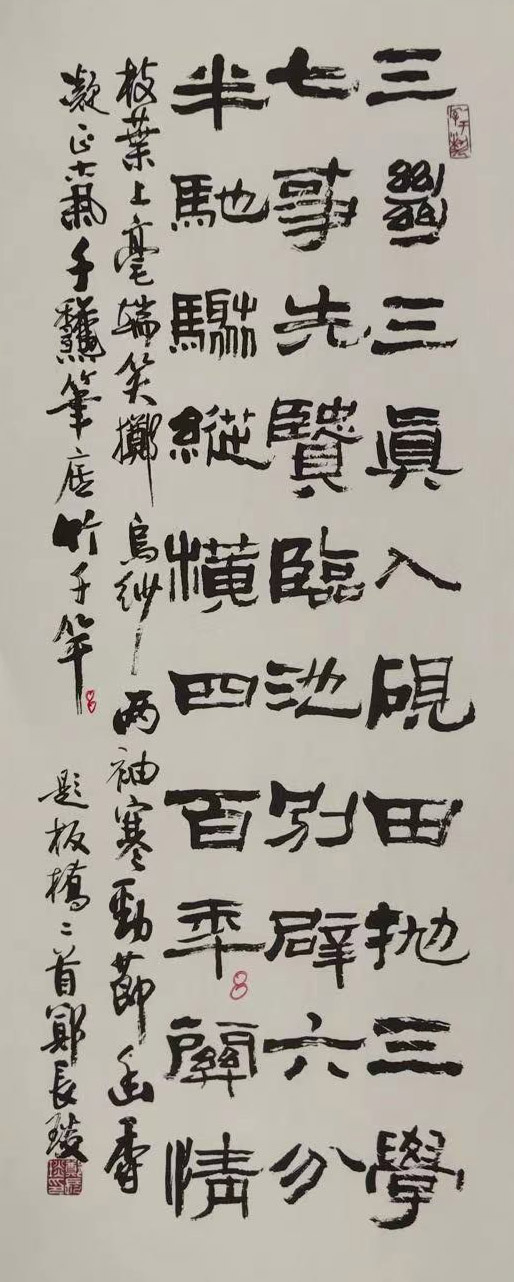 三絕三眞入硯田拋三學
七事先賢臨池別辟六分
半馳騁縱橫四百年關情
枝葉上毫端笑擲烏紗兩袖寒勁節幽香
凝正氣千龝筆底竹千竿
題板橋二首鄭長